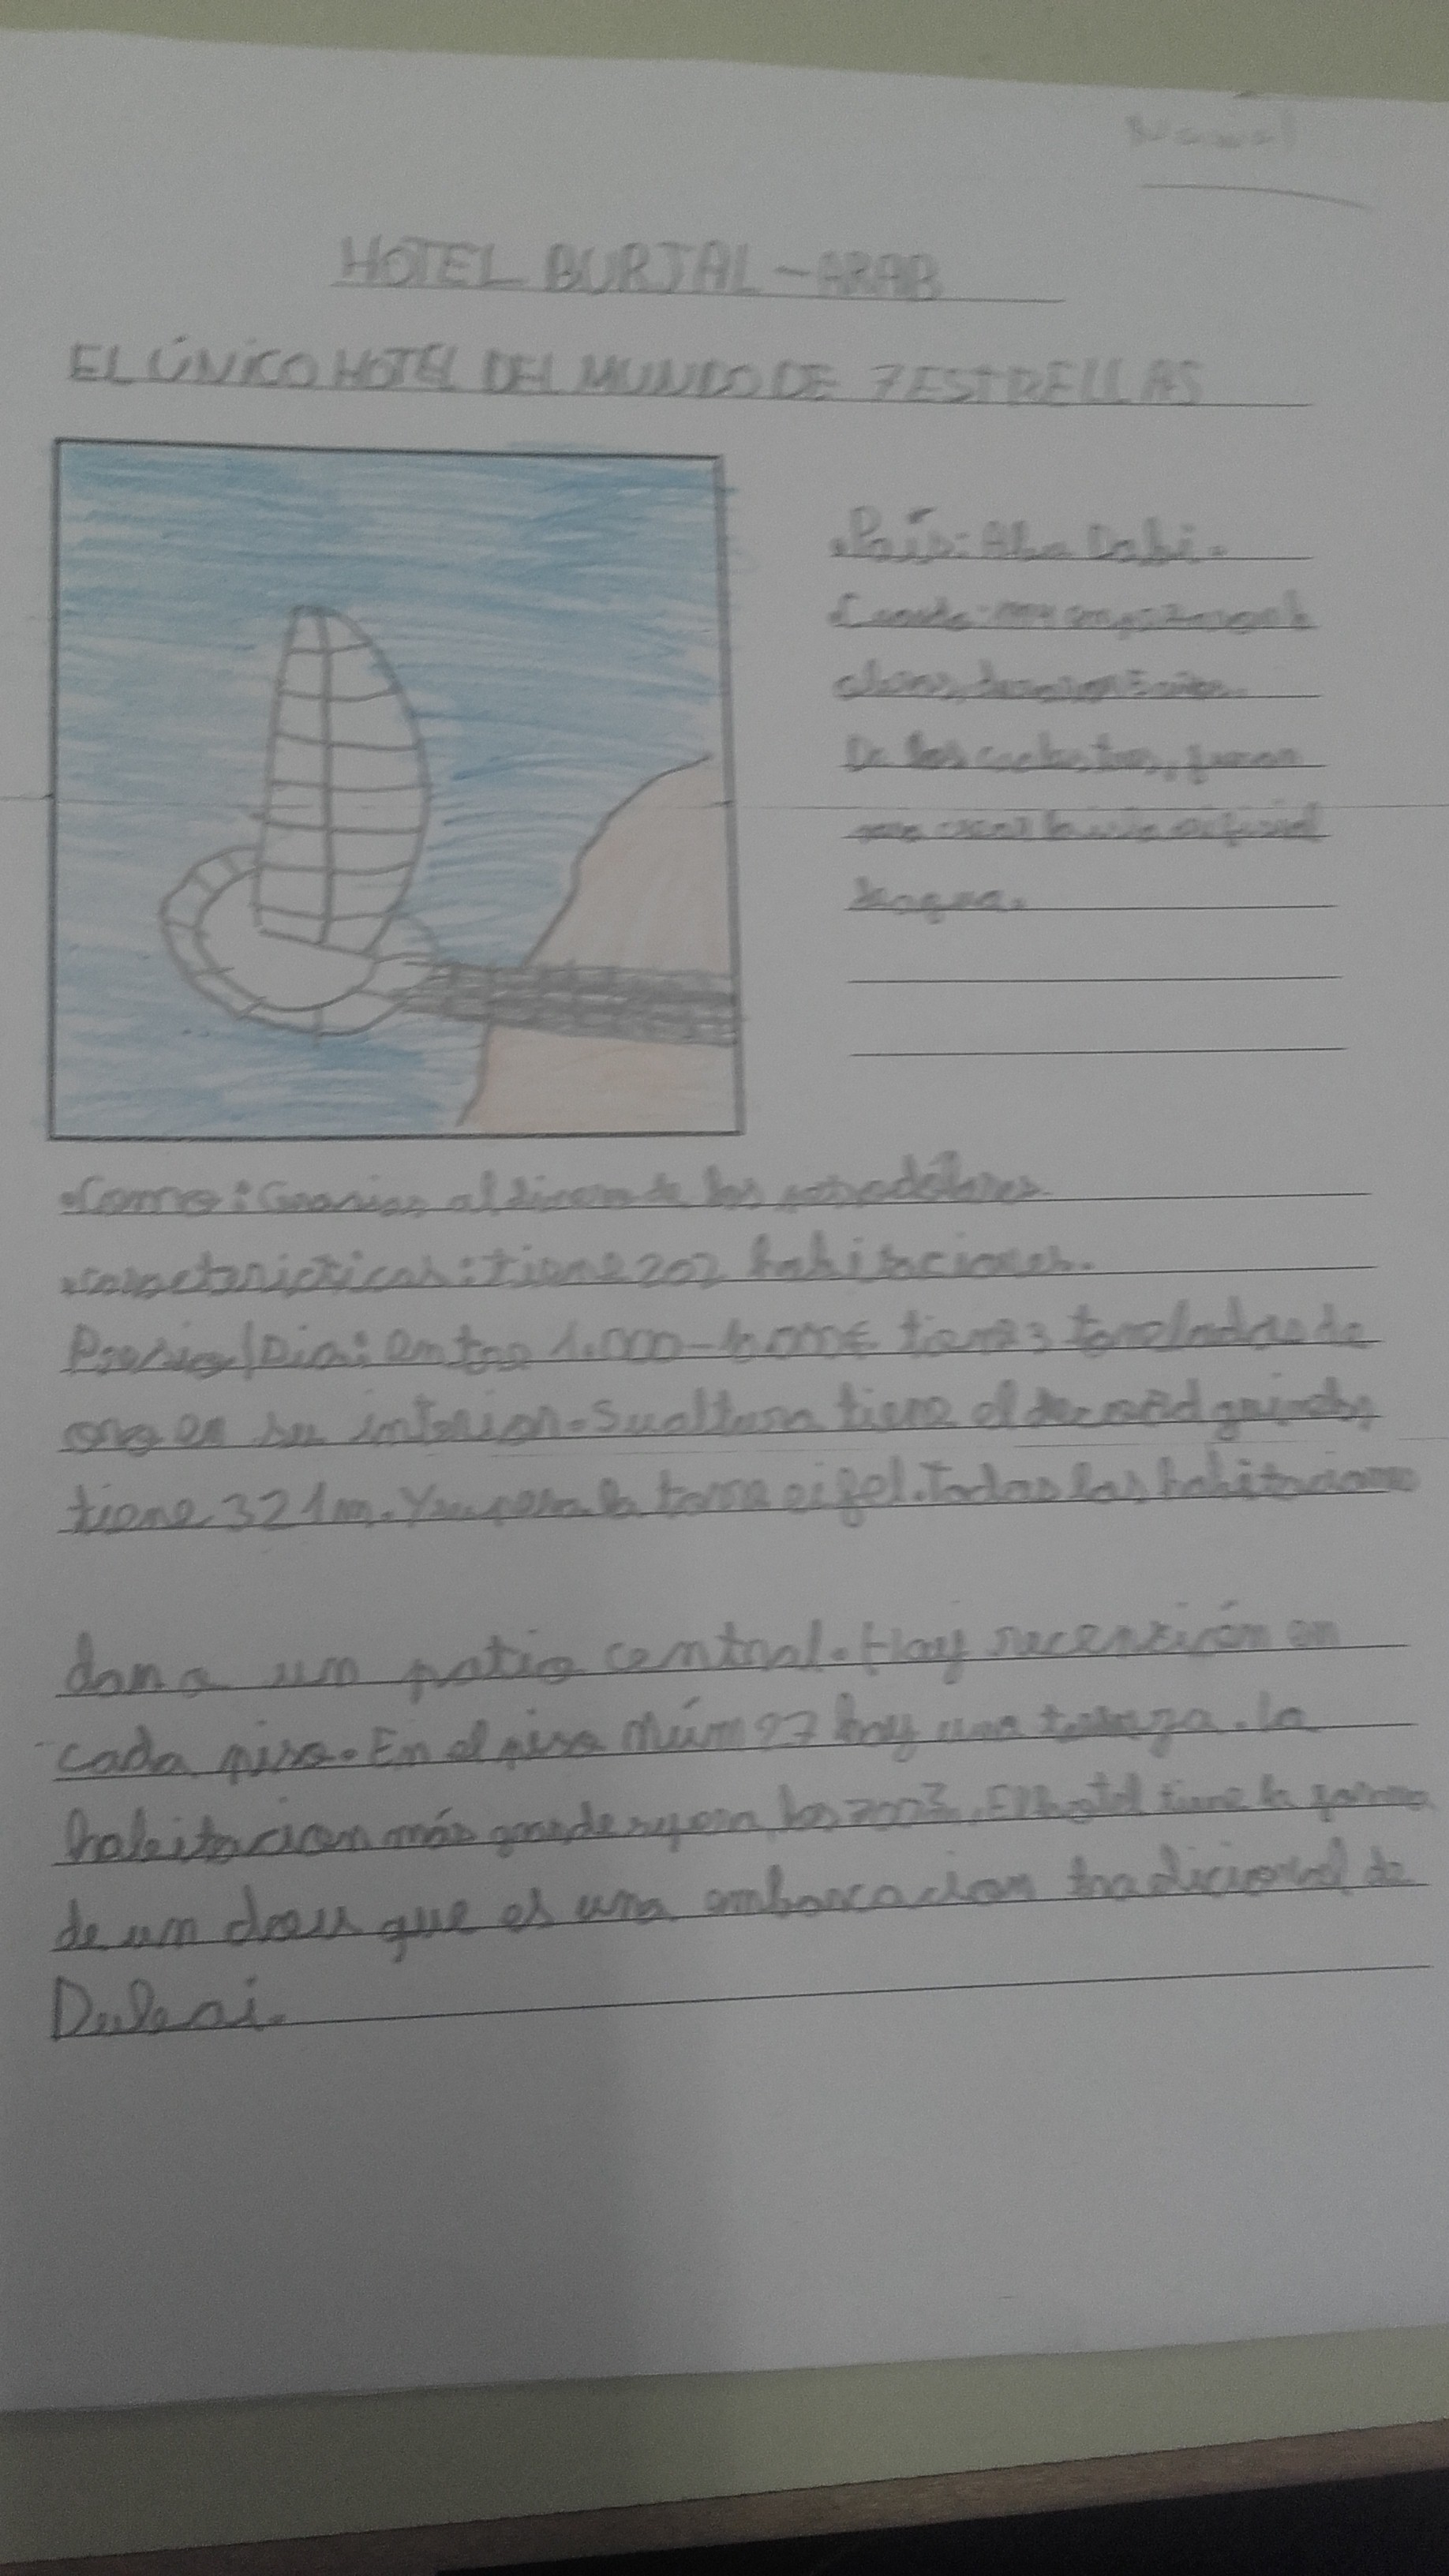 HOTEL BURJAL-ARAB
EL ÚNICO HOTEL DEL MUNDO DE 7 ESTRELLAS
País: Abu Dabi.
De los cuales tres, fueron
para crear la isla artificial
de agua.
Como: Gracias al dinero de los petrodólares
características: tiene 202 habitaciones.
Precio/Dia: entre 1.000- tiene 3 toneladas de
oro en su interior. Su altura tiene el
tiene 321m. Y supera la torre eifel. Todas las habitaciones
dan a un patio central. Hay recepción en
cada piso. En el piso núm 27 hay una terraza. la
habitacion más grande supera los El hotel tiene la forma
de un dow que es una embarcacion tradicional de
Dubai.